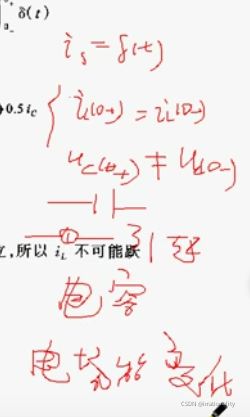 δ(t)
i_s = δ(t)
0.5 i_C
i_L(0+) = i_L(0-)
u_C(0+) ≠ u_C(0-)
立,所以 i_L 不可能跃
引起
电容
电场能变化
CSDN